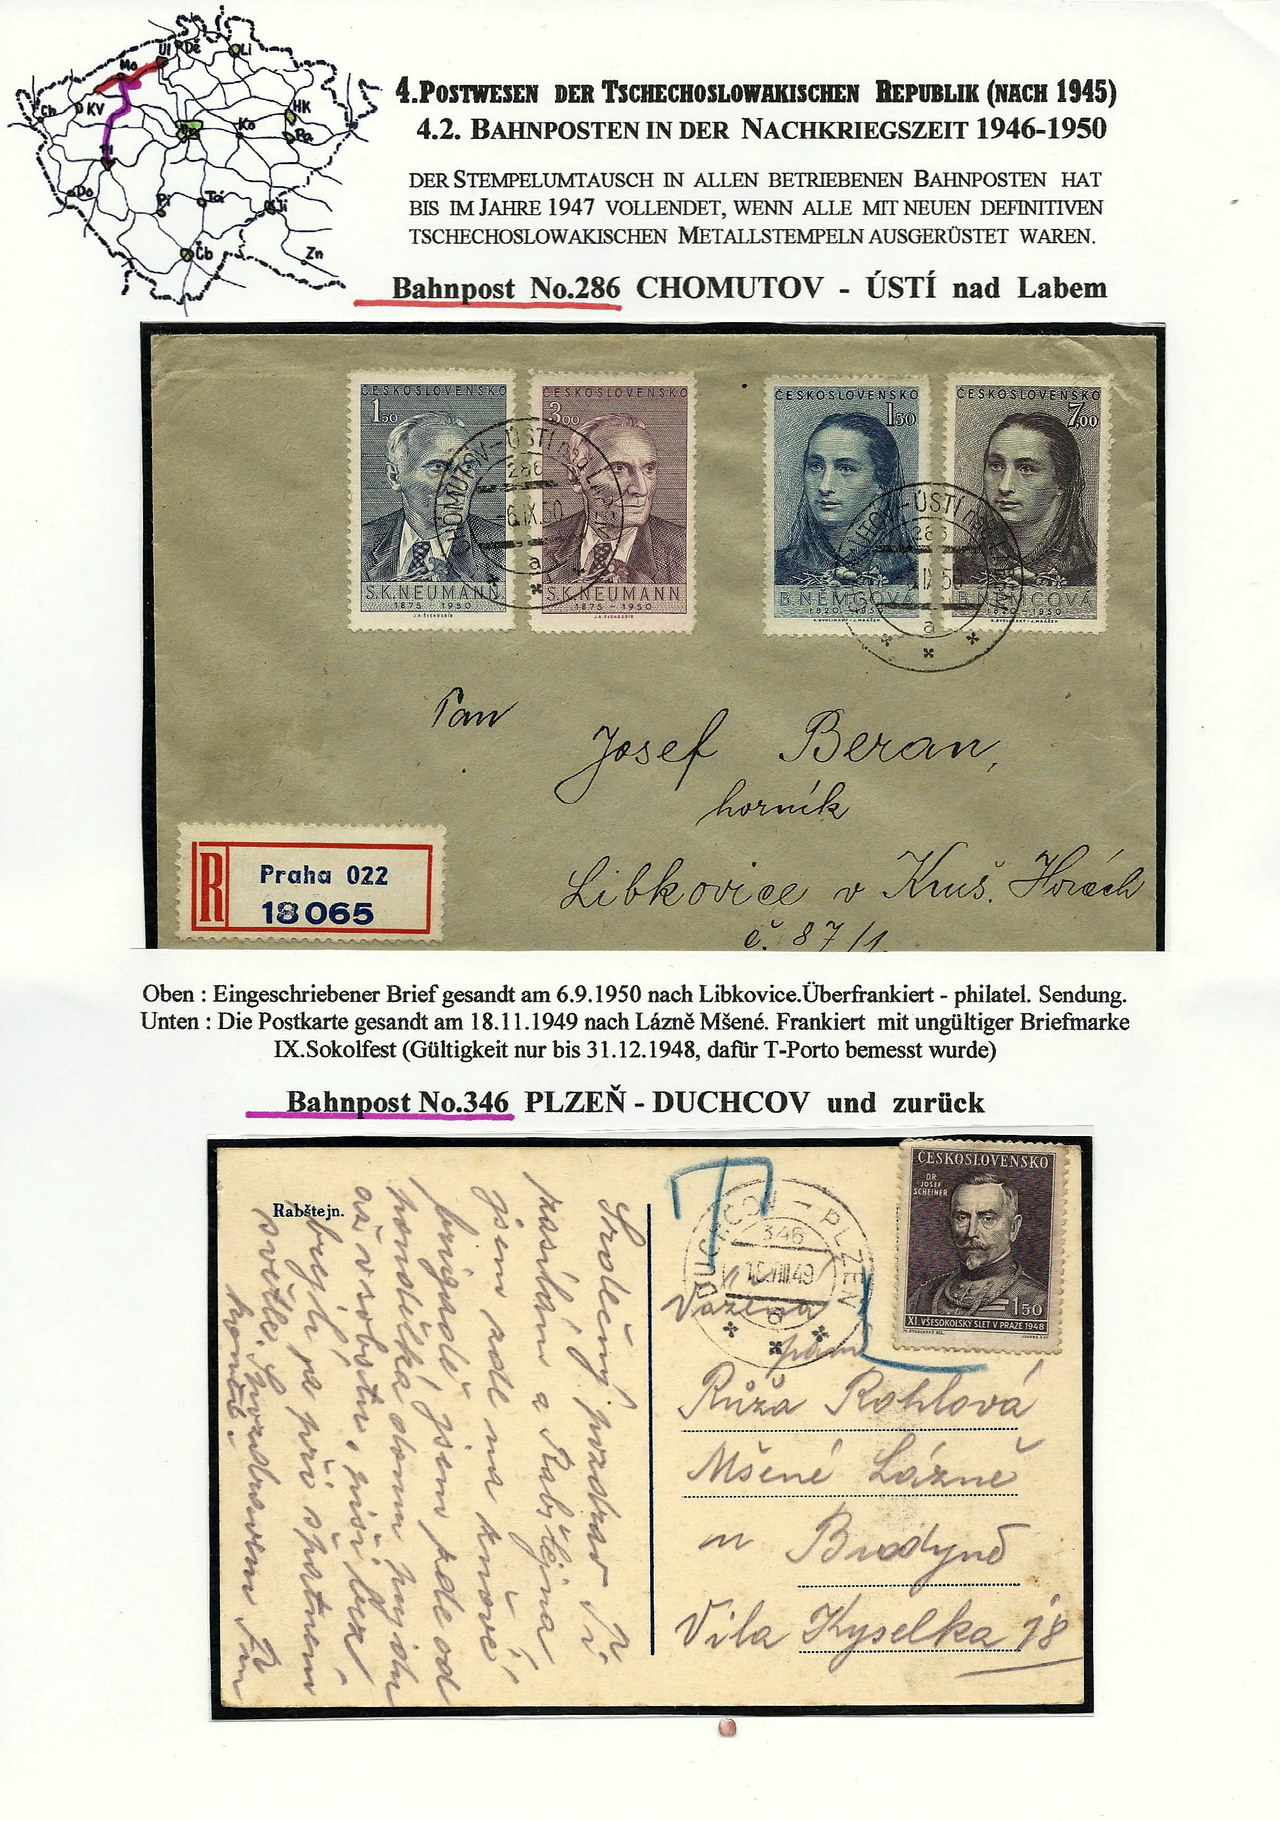 Mo
Ul
Dě
Li
Ch
KV
HK
Ko
Pa
Pl
Do
Pi
Tá
Ji
Čb
Zn
4.POSTWESEN DER TSCHECHOSLOWAKISCHEN REPUBLIK (NACH 1945)
4.2. BAHNPOSTEN IN DER NACHKRIEGSZEIT 1946-1950
DER STEMPELUMTAUSCH IN ALLEN BETRIEBENEN BAHNPOSTEN HAT
BIS IM JAHRE 1947 VOLLENDET, WENN ALLE MIT NEUEN DEFINITIVEN
TSCHECHOSLOWAKISCHEN METALLSTEMPELN AUSGERÜSTET WAREN.
Bahnpost No.286 CHOMUTOV - ÚSTÍ nad Labem
ČESKOSLOVENSKO
1,50
S.K.NEUMANN
1875 - 1950
ČESKOSLOVENSKO
3,00
S.K.NEUMANN
1875 - 1950
CHOMUTOV-ÚSTÍ nad LABEM
286
-6.IX.50
a
ČESKOSLOVENSKO
1,50
B.NĚMCOVÁ
1820-1950
ČESKOSLOVENSKO
7,00
B.NĚMCOVÁ
1820-1950
286
IX 50
a
Pan
Josef Beran,
horník
Libkovice v Kruš. Horách
č. 87/1.
R
Praha 022
18065
Oben : Eingeschriebener Brief gesandt am 6.9.1950 nach Libkovice.Überfrankiert - philatel. Sendung.
Unten : Die Postkarte gesandt am 18.11.1949 nach Lázně Mšené. Frankiert mit ungültiger Briefmarke
IX.Sokolfest (Gültigkeit nur bis 31.12.1948, dafür T-Porto bemesst wurde)
Bahnpost No.346 PLZEŇ - DUCHCOV und zurück
Rabštejn.
Srdečný pozdrav Ti
zasílám z Rabštejna
jsem zde na
brigádě, jsem zde od
pondělka domu pojedu
až v sobotu,
T
DUCHCOV - PLZEŇ
346
VIII.49
ČESKOSLOVENSKO
DR.
JOSEF
SCHEINER
1,50
XI. VŠESOKOLSKÝ SLET V PRAZE 1948
Vážená
paní
Růža Rohlová
Mšené Lázně
u Budyně
Vila Kyselka 18